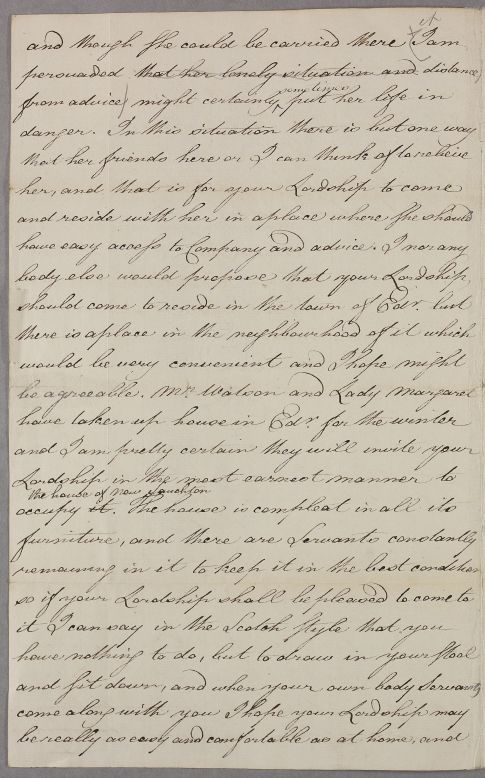 it
and though she could be carried there (I am
persuaded that her lonely situation and distance
from advice) might certainly sometimes put her life in
danger. In this situation there is but one way
that her friends here or I can think of to releive
her, and that is for your Lordship to come
and reside with her in a place where she should
have easy access to Company and advice. I nor any
body else would propose that your Lordship
should come to reside in the town of Edr. but
there is a place in the neighbourhood of it which
would be very convenient and I hope might
be agreeable. Mr. Watson and Lady Margaret
have taken up house in Edr. for the winter
and I am pretty certain they will invite your
Lordship in the most earnest manner to
the house of New Saughton
occupy it. The house is compleat in all its
furniture, and there are Servants constantly
remaining in it to keep it in the best condition
so if your Lordship shall be pleased to come to
it I can say in the Scotch Style that you
have nothing to do, but to draw in your stool
and sit down, and when your own body Servants
come along with you I hope your Lordship may
be really as easy and comfortable as at home, and